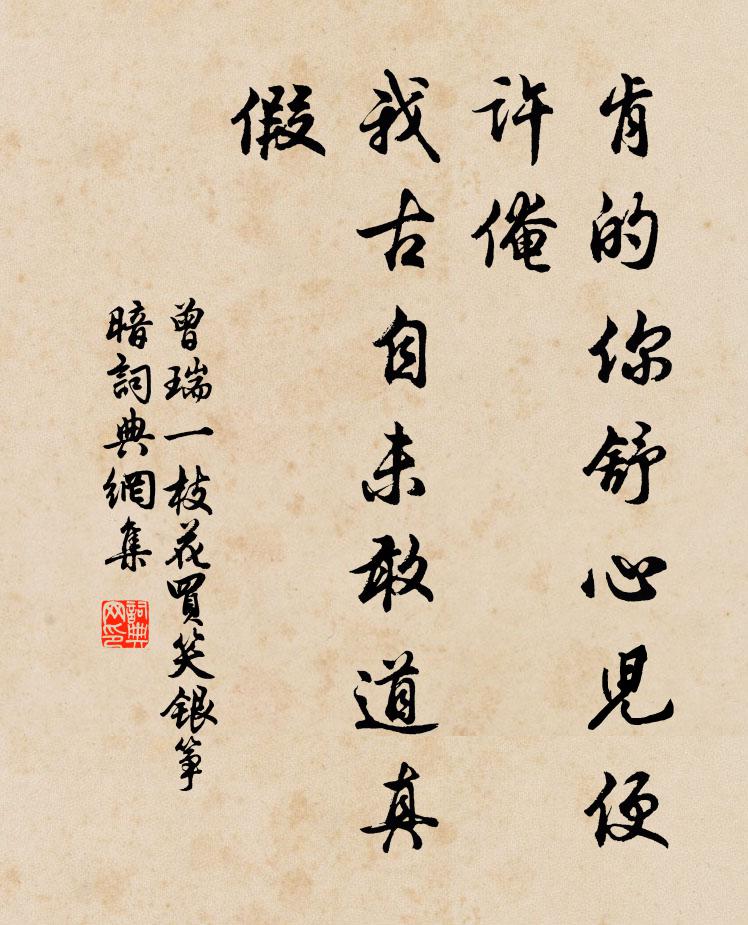 肯的你舒心児便
許俺
我古自未敢道真
假
曾瑞一枝花買笑銀箏
暗詞典網集
詞典网印